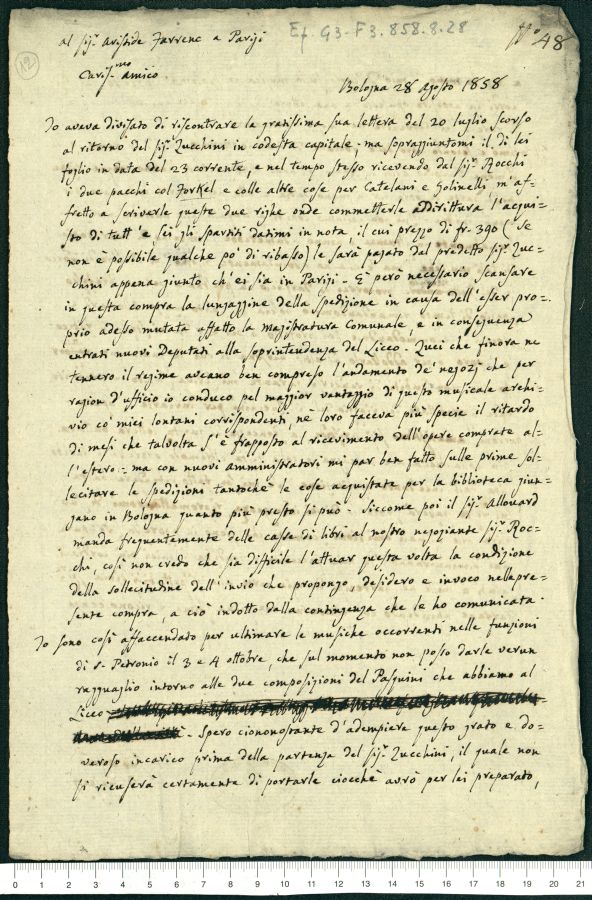 Ep. G3-F3.858.8.28
N.o 48
12
al Sig.r Aristide Farrenc a Parigi
Cariss.mo amico
Bologna 28 Agosto 1858
Io aveva divisato di riscontrare la gratissima sua lettera del 20 luglio scorso
al ritorno del Sig.r Zucchini in codesta capitale - ma sopraggiuntomi il di lei
foglio in data del 23 corrente, e nel tempo stesso ricevendo dal Sig.r Rocchi
i due pacchi col Forkel e colle altre cose per Catelani e Golinelli m'af-
fretto a scriverle queste due righe onde commetterle addirittura l'acqui-
sto di tutt' e sei gli spartiti datimi in nota, il cui prezzo di fr. 390 (se
non è possibile qualche po' di ribasso) le sarà pagato dal predetto Sig.r Zuc-
chini appena giunto ch'ei sia in Parigi - È però necessario scansare
in questa compra la lungaggine della spedizione in causa dell'esser pro-
prio adesso mutata affatto la Magistratura Comunale, e in conseguenza
entrati nuovi Deputati alla soprintendenza del Liceo. Quei che finora ne
tennero il regime aveano ben compreso l'andamento de' negozj che per
ragion d'ufficio io conduco pel maggior vantaggio di questo musicale archi-
vio co' miei lontani corrispondenti, nè loro faceva più specie il ritardo
di mesi che talvolta s'è frapposto al ricevimento dell'opere comprate al-
l'estero - ma con nuovi amministratori mi par ben fatto sulle prime sol-
lecitare le spedizioni tantochè le cose acquistate per la biblioteca giun-
gano in Bologna quanto più presto si può - Siccome poi il Sig.r Allouard
manda frequentemente delle casse di libri al nostro negoziante Sig.r Roc-
chi, così non credo che sia difficile l'attuar questa volta la condizione
della sollecitudine dell'invio che propongo, desidero e invoco nella pre-
sente compra, a ciò indotto dalla contingenza che le ho comunicata.
Io sono così affaccendato per ultimare le musiche occorrenti nelle funzioni
di S. Petronio il 3 e 4 ottobre, che sul momento non posso darle verun
ragguaglio intorno alle due composizioni del Pasquini che abbiamo al
Liceo
- Spero ciononostante d'adempiere questo grato e do-
veroso incarico prima della partenza del Sig.r Zucchini, il quale non
si ricuserà certamente di portarle ciocchè avrò per lei preparato,
0 1 2 3 4 5 6 7 8 9 10 11 12 13 14 15 16 17 18 19 20 21